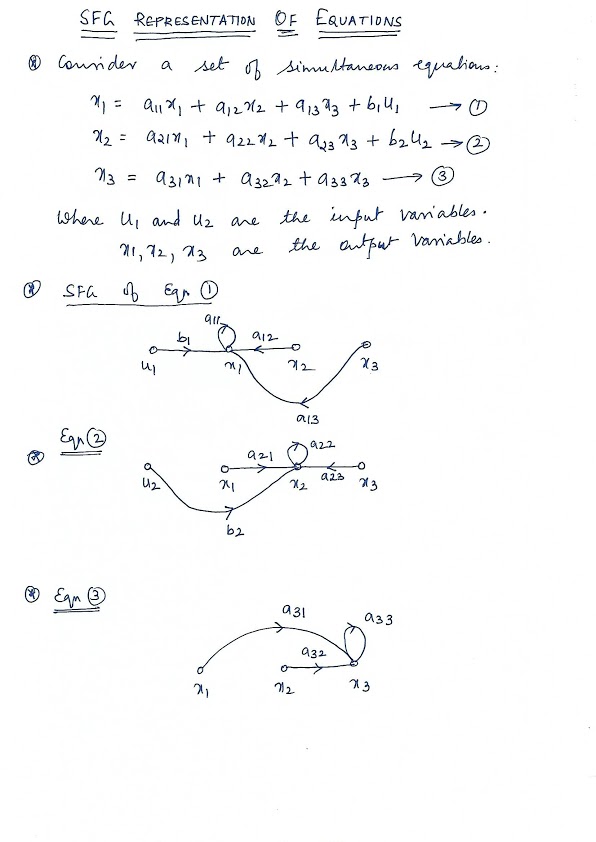 SFG REPRESENTATION OF EQUATIONS
Consider a set of simultaneous equations:
x1 = a11x1 + a12x2 + a13x3 + b1u1 → ①
x2 = a21x1 + a22x2 + a23x3 + b2u2 → ②
x3 = a31x1 + a32x2 + a33x3 → ③
Where u1 and u2 are the input variables.
x1, x2, x3 are the output variables.
SFG of Eqn ①
a11
b1 a12
u1 x1 x2 x3
a13
Eqn ②
a21 a22
u2 x1 x2 a23 x3
b2
Eqn ③
a31 a33
a32
x1 x2 x3